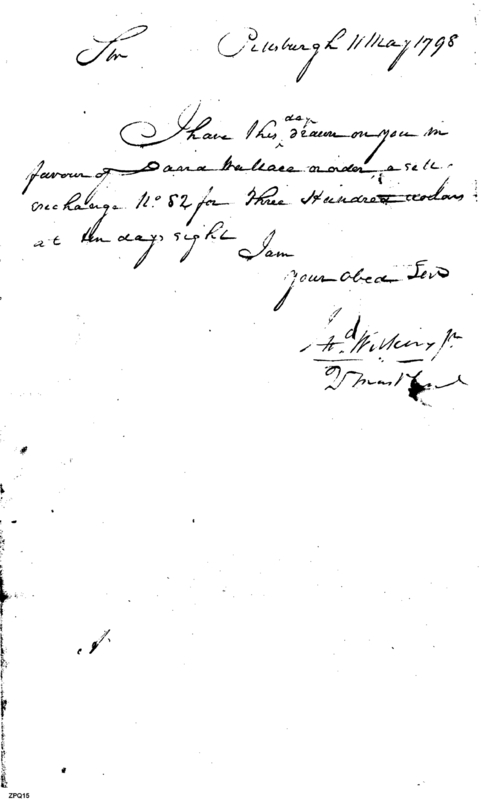 Sir Pittsburgh 11 May 1798
I have this day drawn on you in
favour of David Wallace or order, a sett
exchange No 82 for Three Hundred dolars
at ten days sight
I am
your obed Serv
Wilkins Jr
ZPQ15